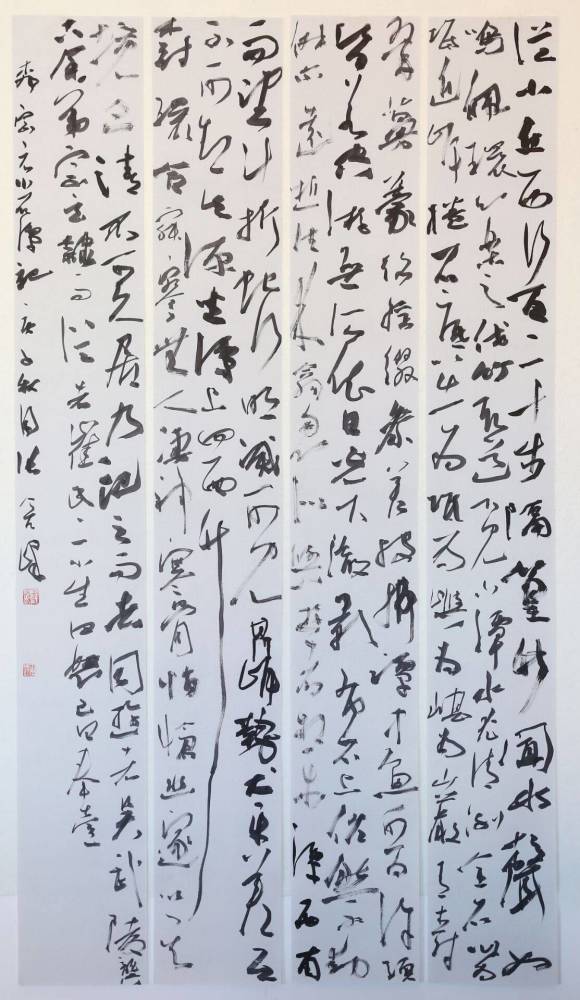 從小丘西行百二十步隔篁竹聞水聲如
鳴佩環心樂之伐竹取道下見小潭水尤清冽全石以為
底近岸捲石底以出為坻為嶼為嵁為巖青樹
翠蔓蒙絡搖綴參差披拂潭中魚可百許頭
皆若空游無所依日光下澈影布石上佁然不動
俶爾遠逝往來翕忽似與遊者相樂潭西南
而望斗折蛇行明滅可見其岸勢犬牙差互
不可知其源坐潭上四面竹
樹環合寂寥無人淒神寒骨悄愴幽邃以其
境過清不可久居乃記之而去同遊者吳武陵龔
古余弟宗玄隸而從者崔氏二小生曰恕己曰奉壹
柳宗元小石潭記庚子秋月